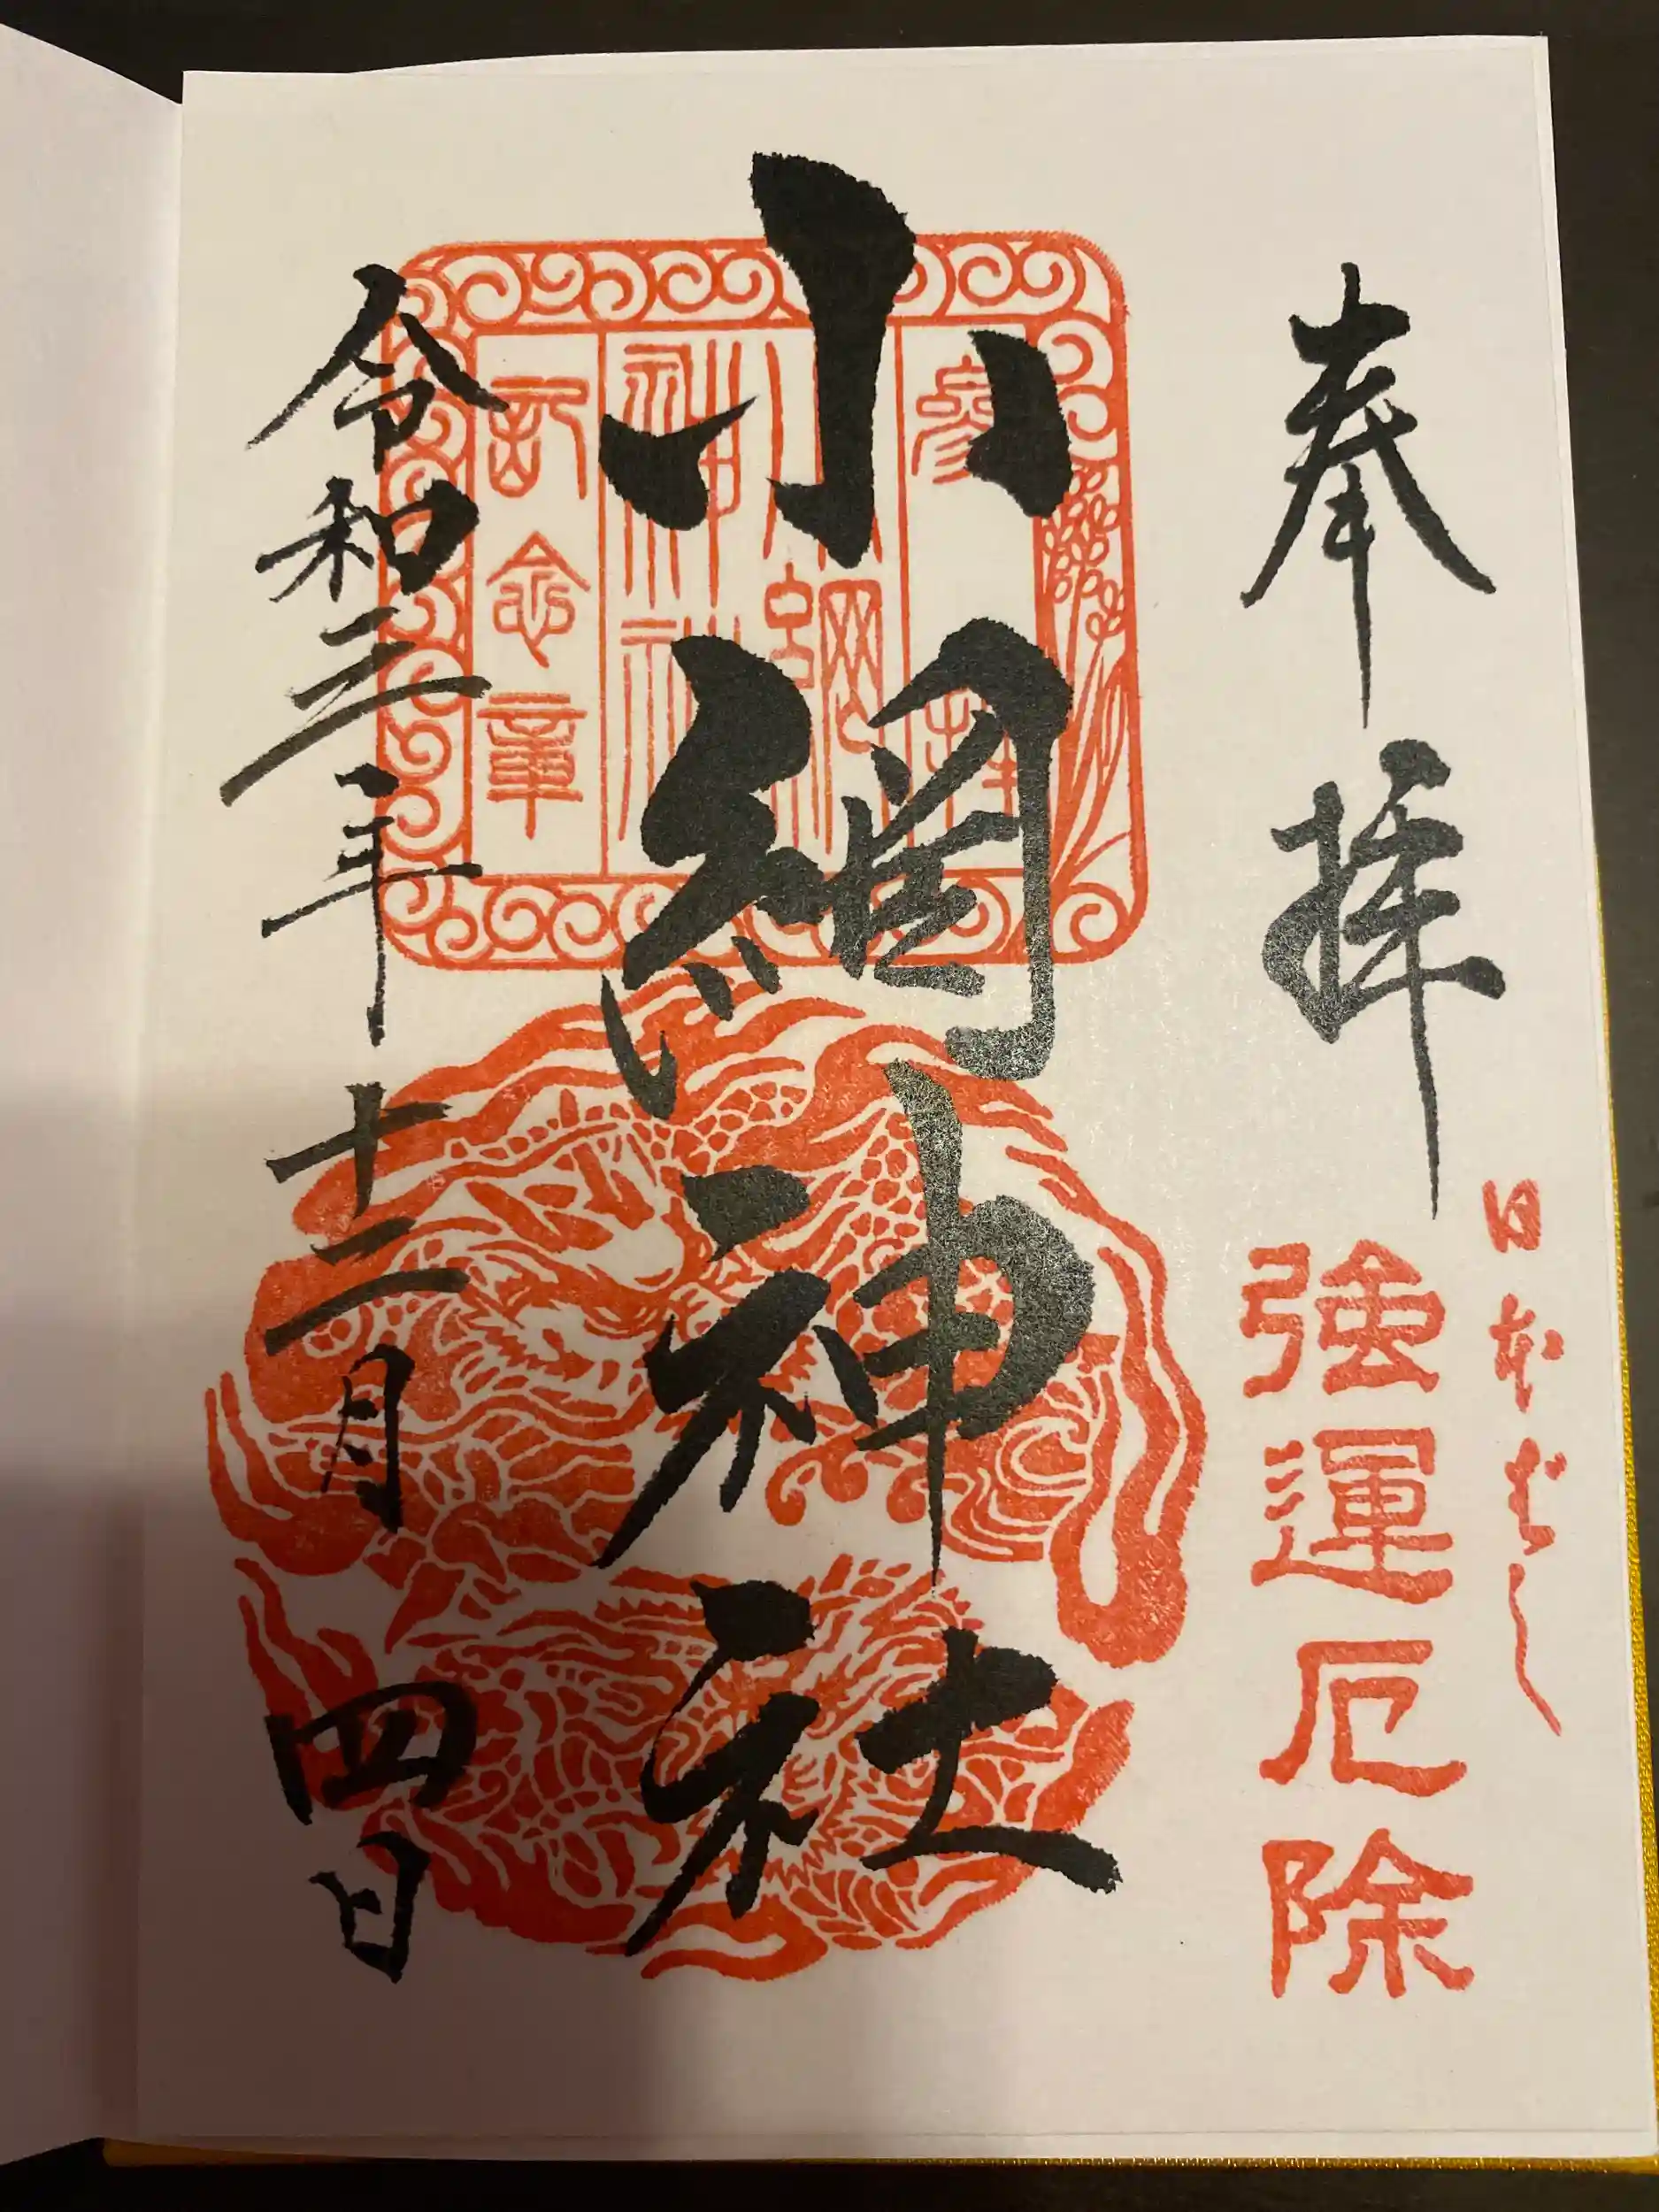 日本ばし
奉拝
強運厄除
小網神社
参拝
小網
神社
記念章
令和三年十二月四日